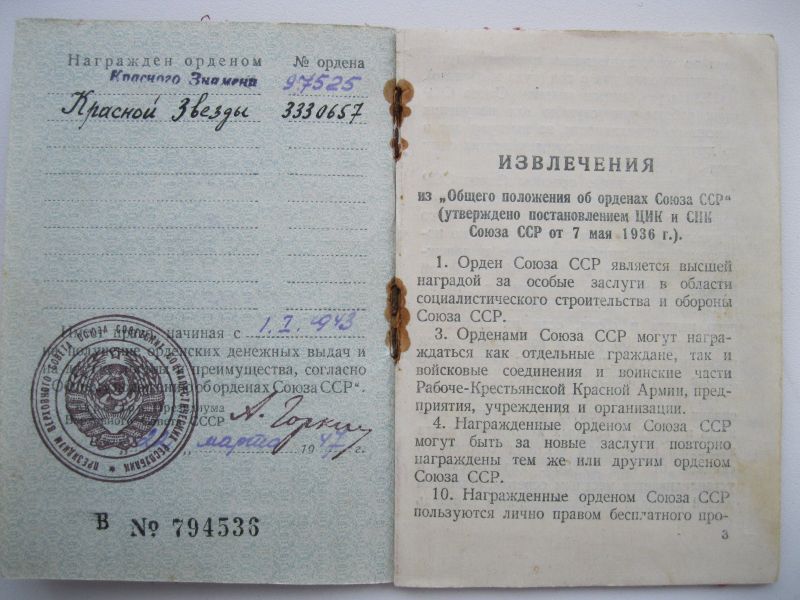 Награжден орденом № ордена
Красного Знамени 97525
Красной Звезды 3330657
Имеет право, начиная с 1.I.1943
на получение орденских денежных выдач и
преимущества, согласно
об орденах Союза ССР“.
Президиума
СССР А. Горкин
марта 1947 г.
ПРЕЗИДИУМ ВЕРХОВНОГО СОВЕТА СОЮЗА СОВЕТСКИХ СОЦИАЛИСТИЧЕСКИХ РЕСПУБЛИК
В № 794536
ИЗВЛЕЧЕНИЯ
из „Общего положения об орденах Союза ССР“
(утверждено постановлением ЦИК и СНК
Союза ССР от 7 мая 1936 г.).
1. Орден Союза ССР является высшей
наградой за особые заслуги в области
социалистического строительства и обороны
Союза ССР.
3. Орденами Союза ССР могут награ-
ждаться как отдельные граждане, так и
войсковые соединения и воинские части
Рабоче-Крестьянской Красной Армии, пред-
приятия, учреждения и организации.
4. Награжденные орденом Союза ССР
могут быть за новые заслуги повторно
награждены тем же или другим орденом
Союза ССР.
10. Награжденные орденом Союза ССР
пользуются лично правом бесплатного про-
3